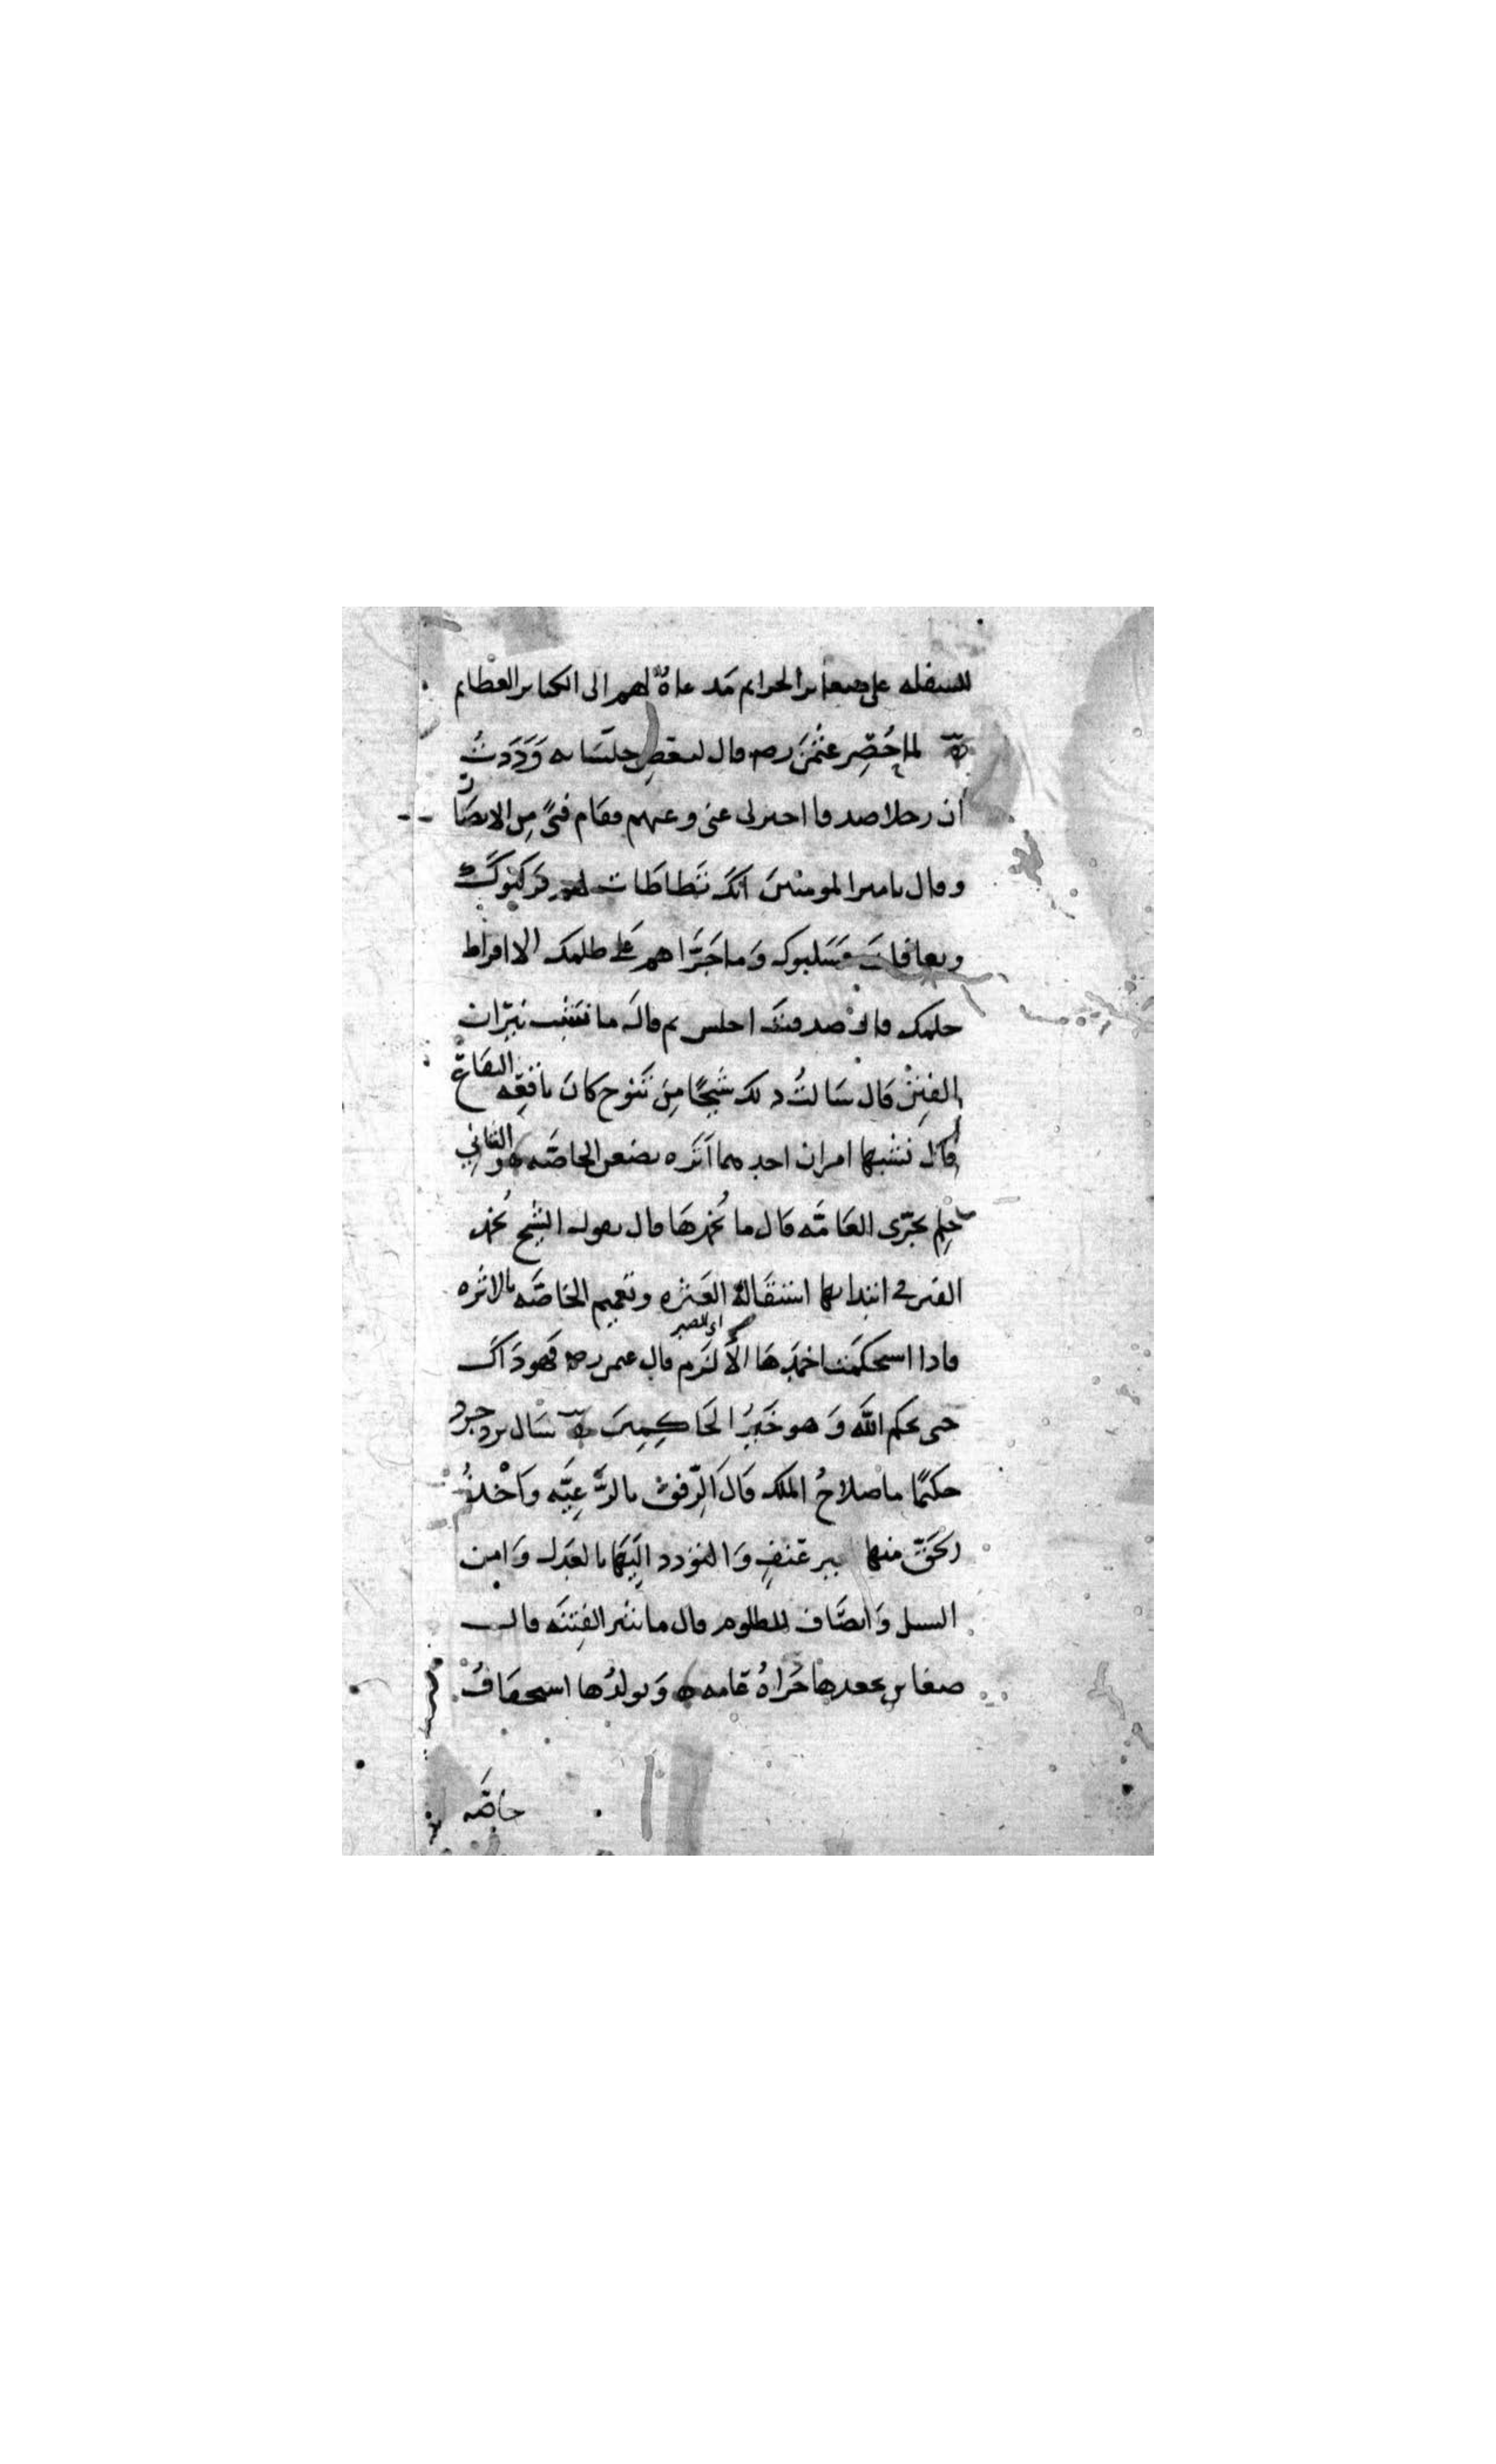 للسفله على صغاير الجرايم مدعاة لهم الى الكباير العظايم
لما حُصِر عثمن رضه قال لبعض جلسايه وَدَدتُ
ان رجلا صدوقا اخبرنى عنى وعنهم فقام فتىً من الانصار
وقال يا امير المومنين انكَ تَطاطَات لهم فركبُوكَ
وتعافلتَ فسَلبوك وَما جَرَّاهم على ظلمك الا افراط
حلمك قال صدقتَ اجلس ثم قالَ ما تشب نيران
الفِتن قال سَالتُ ذلك شَيخًا مِن تَنوخ كانَ باقعه
قال تشبها امران احدهما اَثَره تضغن الخاصَّه والثانى
حِلم يجرّى العَامَّه قال ما يُخمدهَا قال يقول الشيخ يُخمد
الفتن فى ابتدايها استقالةُ العَثره وتعميم الخاصَّه بالاثره
اى للصبر
فاذا استحكمَت اخمدهَا الأَلزم قال عثمن رضه فهو ذاكَ
حتى يحكم اللّه وَهو خَيرُ الحَاكِمِينَ سَال يزدجرد
حكيمًا ما صلاحُ الملك قالَ الرِّفق بالرَّعيَّه وَاَخْذُ
الحَقّ منها بغير عُنفٍ وَالتودد اِليها بالعَدل وَامن
السبل وَانصَاف المظلوم قال ما يثير الفِتنَه قال
صغاير يعقدها جُراةُ عامه وَيولدُها استخفَافُ
خاصَّه